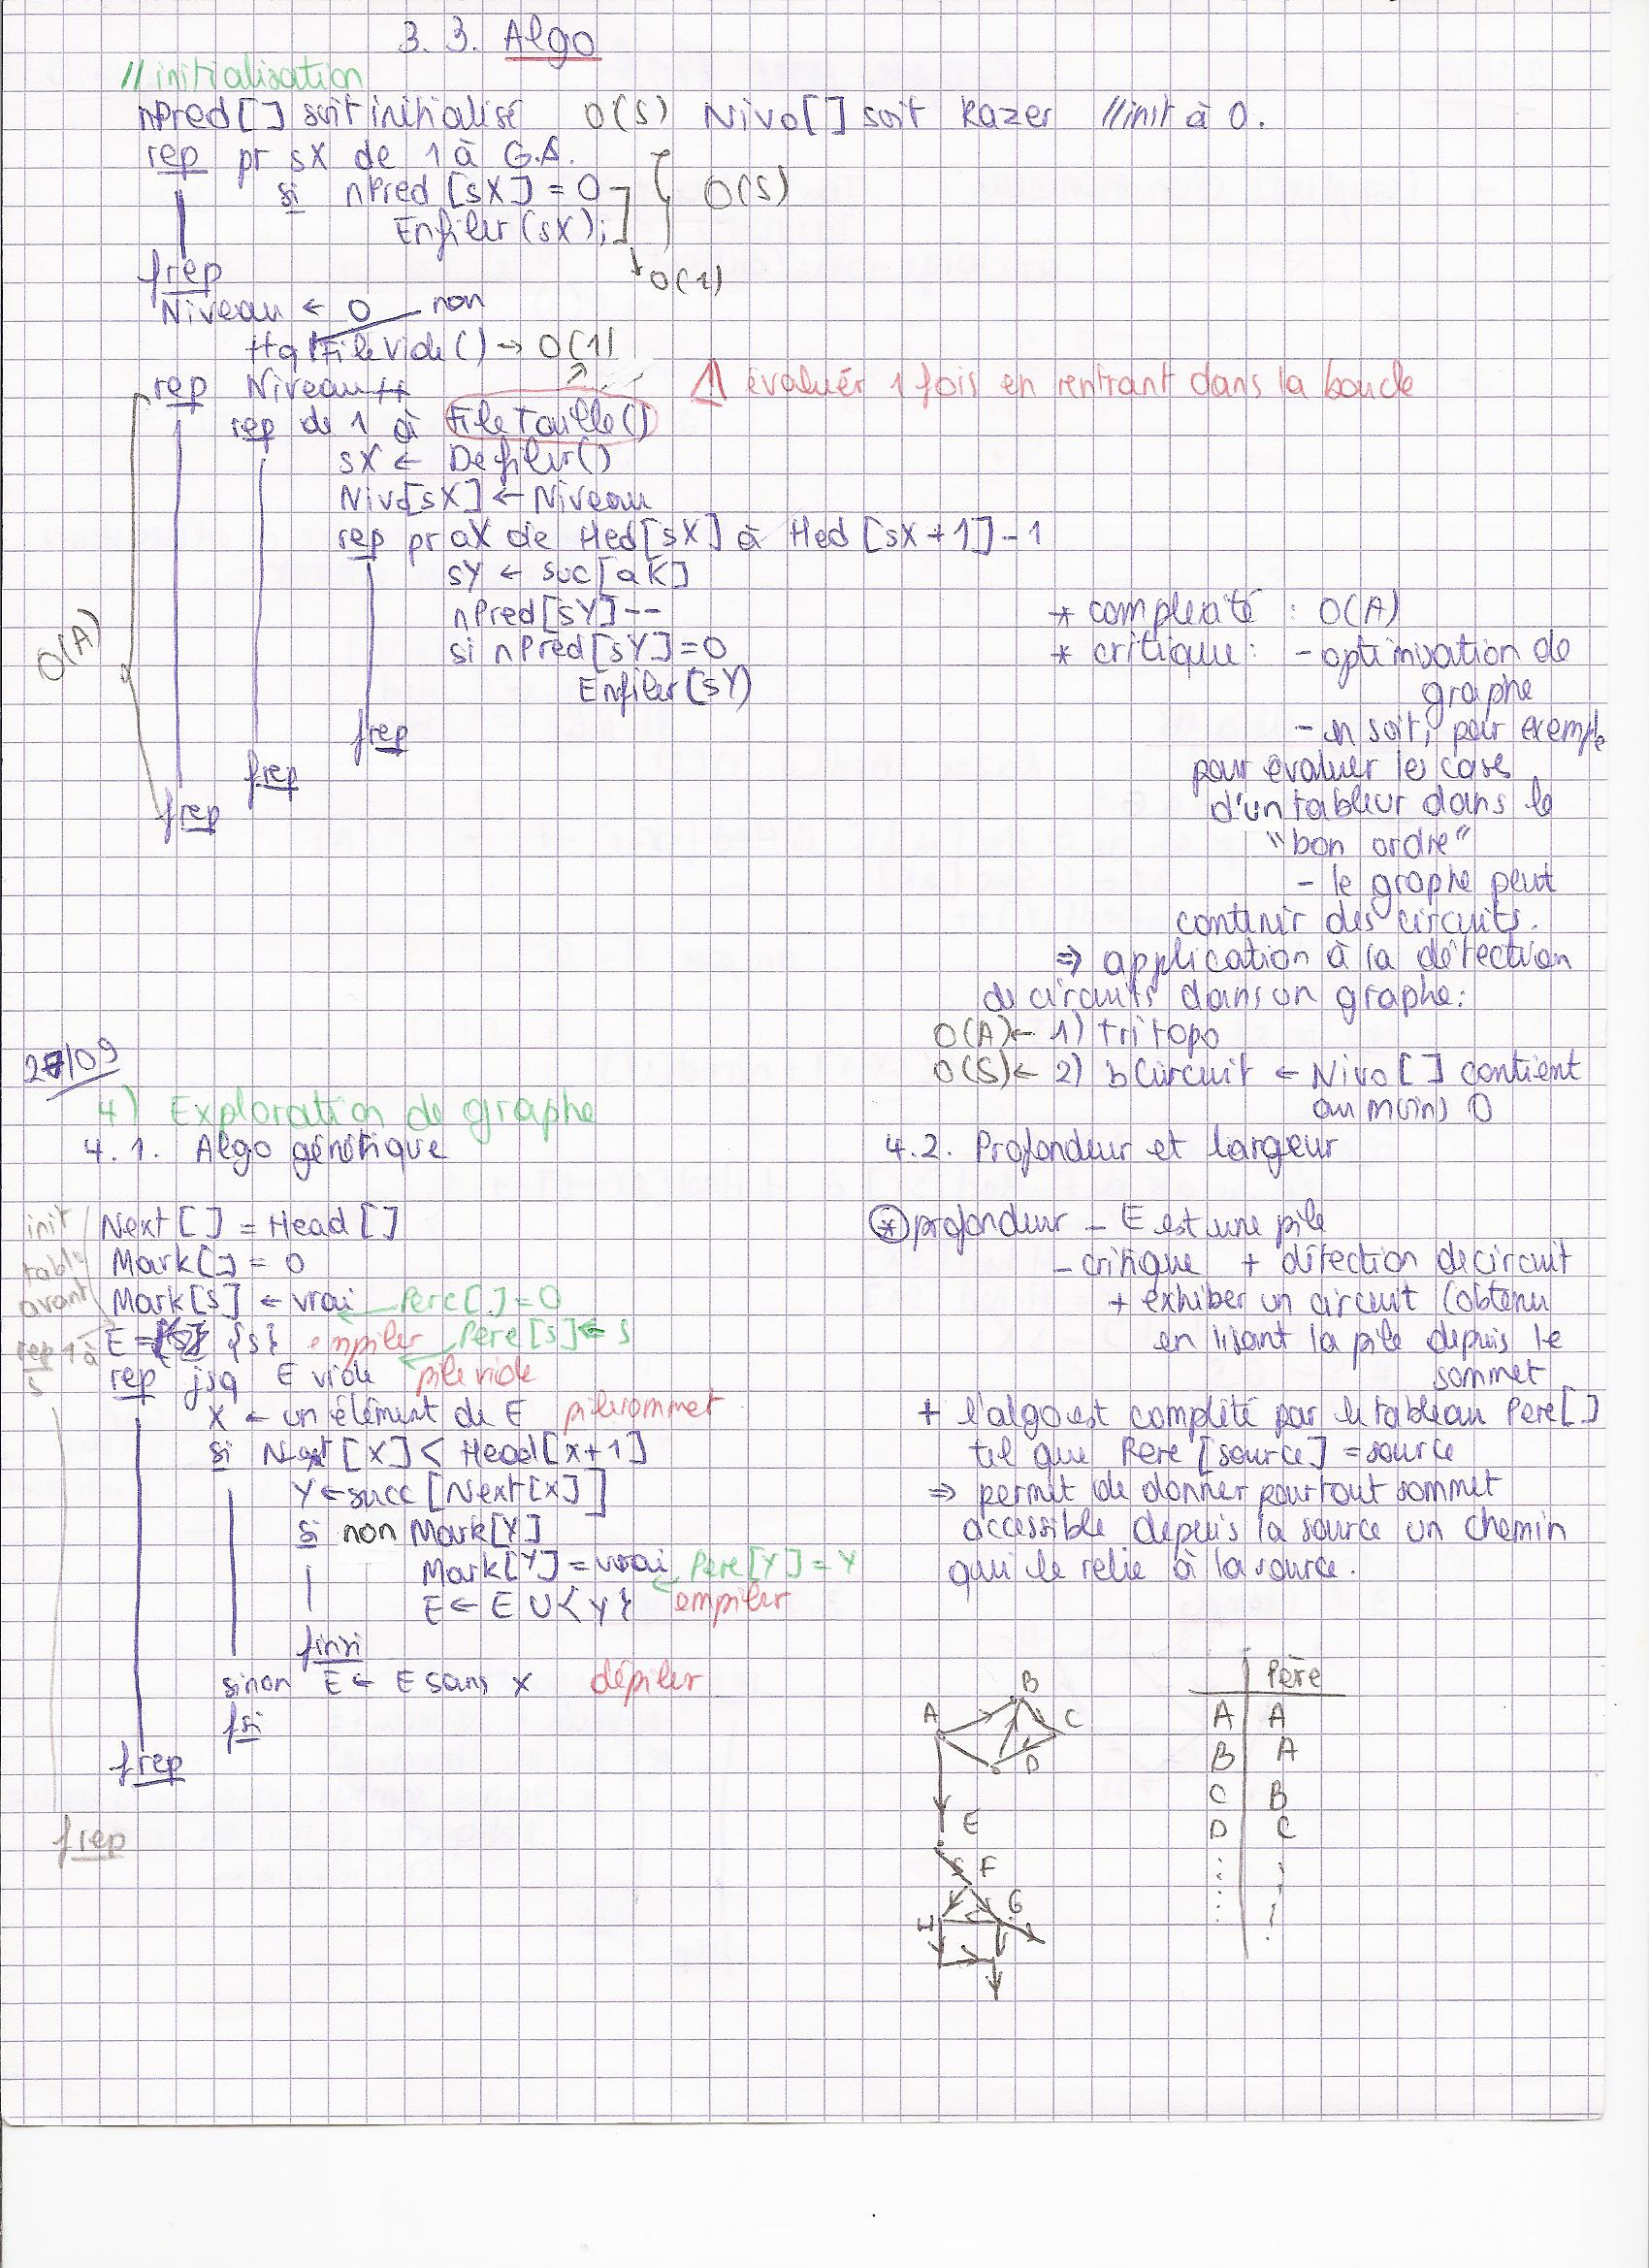 3.3. Algo
// initialisation
nPred[] soit initialisé O(S) Nivo[] soit Razer //init à 0.
rep pr sX de 1 à G.S.
si nPred[sX] = 0 O(S)
Enfiler(sX);
O(1)
frep
Niveau ← 0 non
ttq FileVide() → O(1)
rep Niveau++ ⚠ évaluér 1 fois en rentrant dans la boucle
rep de 1 à FileTaille()
sX ← Defiler()
Nivo[sX] ← Niveau
rep pr aX de Hed[sX] à Hed[sX+1]-1
sY ← suc[aX]
nPred[sY]--
si nPred[sY]=0
Enfiler(sY)
frep
frep
frep
O(A)
* complexité : O(A)
* critique : - optimisation de
graphe
- en soit, pour exemple
pour évaluer les cases
d'un tableur dans le
"bon ordre"
- le graphe peut
contenir des circuits.
⇒ application à la détection
de circuits dans un graphe:
O(A) ← 1) tri topo
O(S) ← 2) bCircuit ← Nivo[] contient
au moins 0
27/09
4) Exploration de graphe
4.1. Algo générique
init Next[] = Head[]
table Mark[] = 0
avant Mark[s] ← vrai Pere[]=0
rep 1 à E = {s} empiler Pere[s] ← s
S rep jsq E vide pile vide
X ← un élément de E pilesommet
si Next[X] < Head[x+1]
Y ← succ[Next[x]]
si non Mark[Y]
Mark[Y] = vrai Pere[Y] = Y
E ← E ∪ {Y} empiler
finsi
sinon E ← E sans x dépiler
fsi
frep
frep
4.2. Profondeur et largeur
* profondeur - E est une pile
- critique + détection de circuit
+ exhiber un circuit (obtenu
en lisant la pile depuis le
sommet
+ l'algo est complété par le tableau Pere[]
tel que Pere[source] = source
⇒ permet de donner pour tout sommet
accessible depuis la source un chemin
qui le relie à la source.
A B C D E F G H
Père
A A
B A
C B
D C